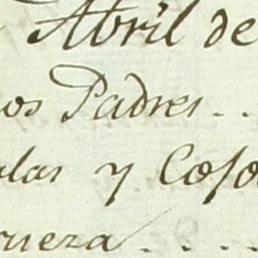 Abril de
os Padres . .
las y Caso
rueza . . . .